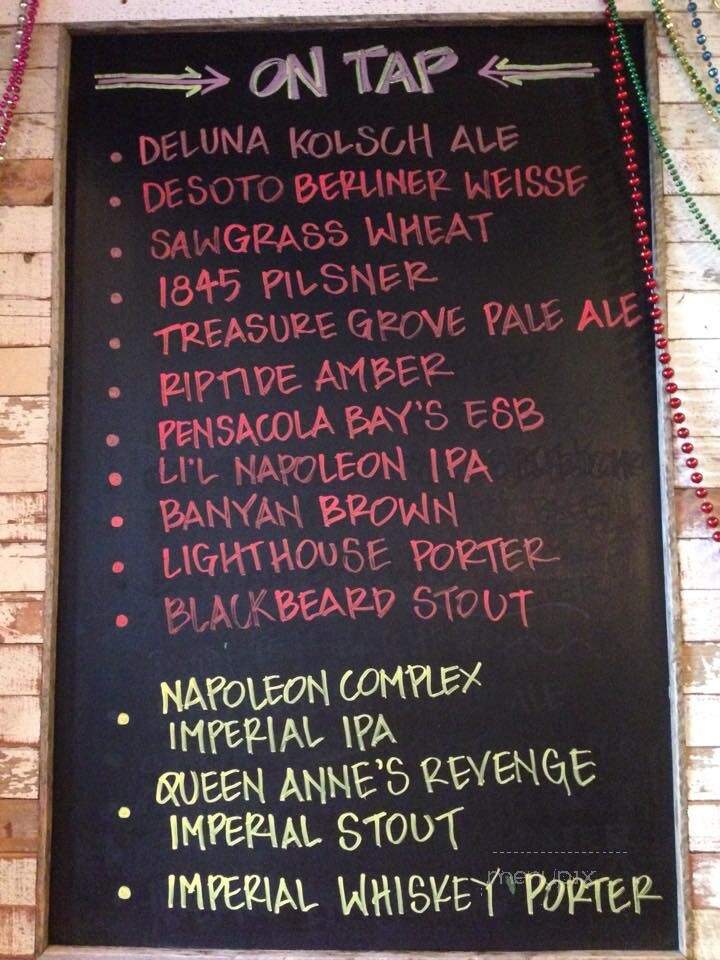 ON TAP
DELUNA KOLSCH ALE
DESOTO BERLINER WEISSE
SAWGRASS WHEAT
1845 PILSNER
TREASURE GROVE PALE ALE
RIPTIDE AMBER
PENSACOLA BAY'S ESB
LI'L NAPOLEON IPA
BANYAN BROWN
LIGHTHOUSE PORTER
BLACKBEARD STOUT
NAPOLEON COMPLEX
IMPERIAL IPA
QUEEN ANNE'S REVENGE
IMPERIAL STOUT
IMPERIAL WHISKEY PORTER
menupix